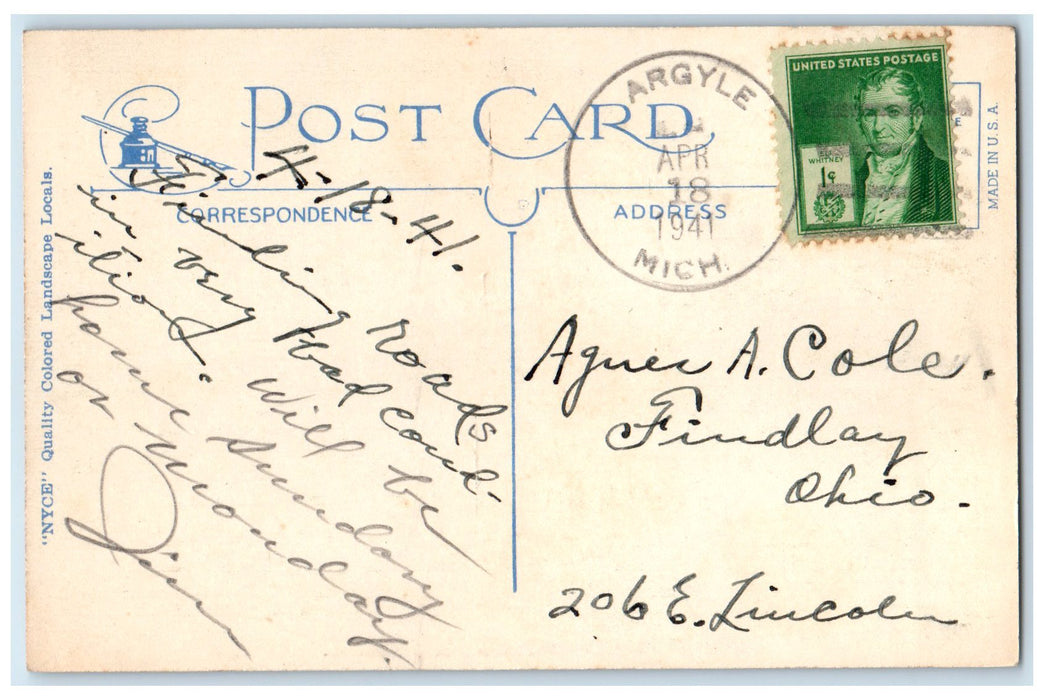 POST CARD
CORRESPONDENCE
ADDRESS
"NYCE" Quality Colored Landscape Locals.
MADE IN U.S.A.
ARGYLE
APR
18
1941
MICH.
UNITED STATES POSTAGE
WHITNEY
1¢
4-18-41.
Finding roads
in very bad cond-
ition. Will be
home Sunday
or Monday.
Jim
Agnes A. Cole.
Findlay
Ohio.
206 E. Lincoln